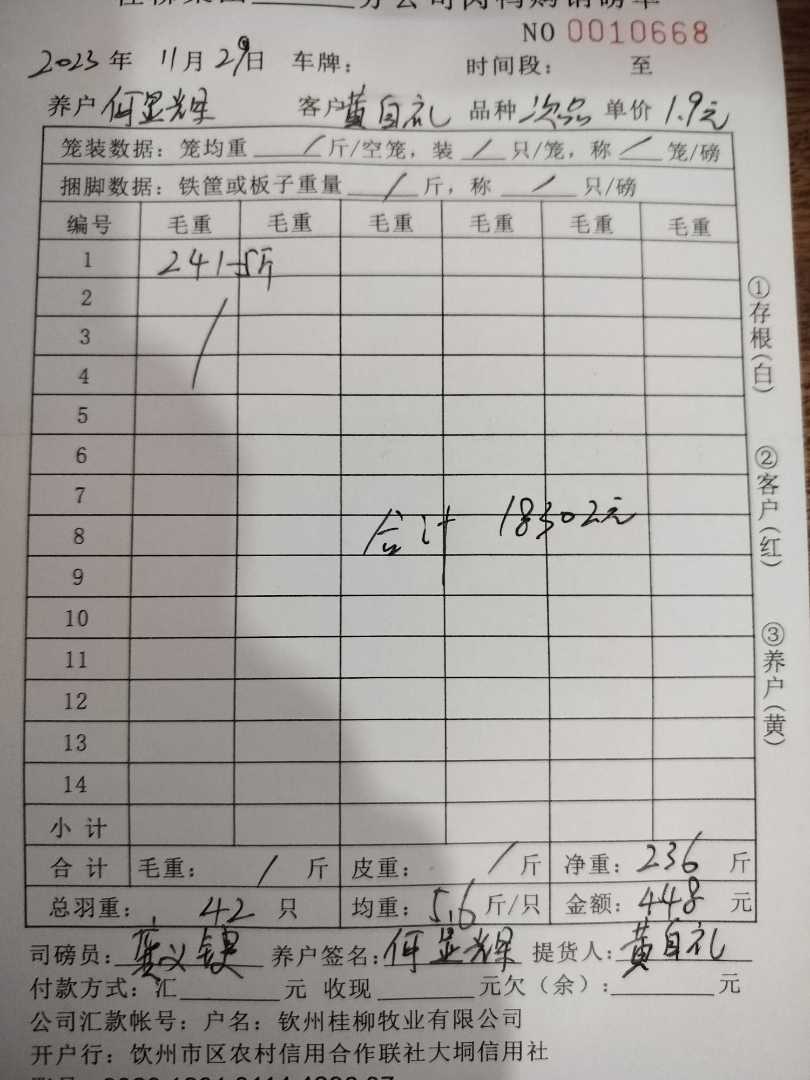 分公司肉鸭购销磅单
NO 0010668
2023年 11月29日 车牌: 时间段: 至
养户 何显辉 客户 黄自礼 品种 次品 单价 1.9元
笼装数据: 笼均重 / 斤/空笼, 装 / 只/笼, 称 / 笼/磅
捆脚数据: 铁筐或板子重量 / 斤, 称 / 只/磅
编号 毛重 毛重 毛重 毛重 毛重 毛重
1 241斤
2
3
4
5
6
7
8 合计 18302元
9
10
11
12
13
14
小计
合计 毛重: / 斤 皮重: / 斤 净重: 236 斤
总羽重: 42 只 均重: 5.6 斤/只 金额: 448 元
司磅员: 养户签名: 何显辉 提货人: 黄自礼
付款方式: 汇 元 收现 元欠(余): 元
公司汇款帐号: 户名: 钦州桂柳牧业有限公司
开户行: 钦州市区农村信用合作联社大垌信用社
①存根(白)
②客户(红)
③养户(黄)